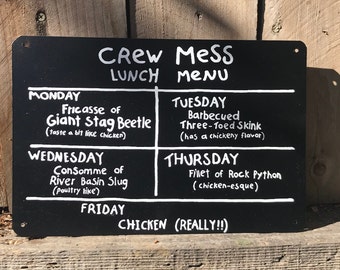 CREW MESS
LUNCH MENU
MONDAY
Fricasse of
Giant Stag Beetle
(taste a bit like chicken)
TUESDAY
Barbecued
Three-Toed Skink
(has a chickeny flavor)
WEDNESDAY
Consomme of
River Basin Slug
(poultry like)
THURSDAY
Fillet of Rock Python
(chicken-esque)
FRIDAY
CHICKEN (REALLY!!)